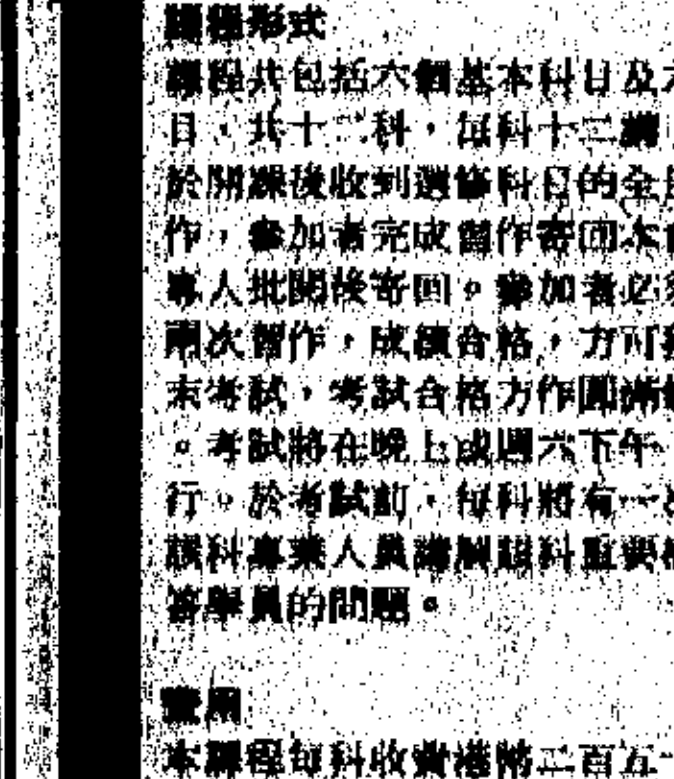 課程形式
課程共包括六個基本科目及六
目，共十二科，每科十二講
於開課後收到選修科目的全
作，參加者完成習作寄回本
專人批閱後寄回。參加者必須
兩次習作，成績合格，方可
末考試，考試合格方作圓滿
。考試將在晚上或週六下午
行。於考試前，每科將有一
該科專業人員講解該科重要
答學員的問題。
費用
本課程每科收費港幣二百五十